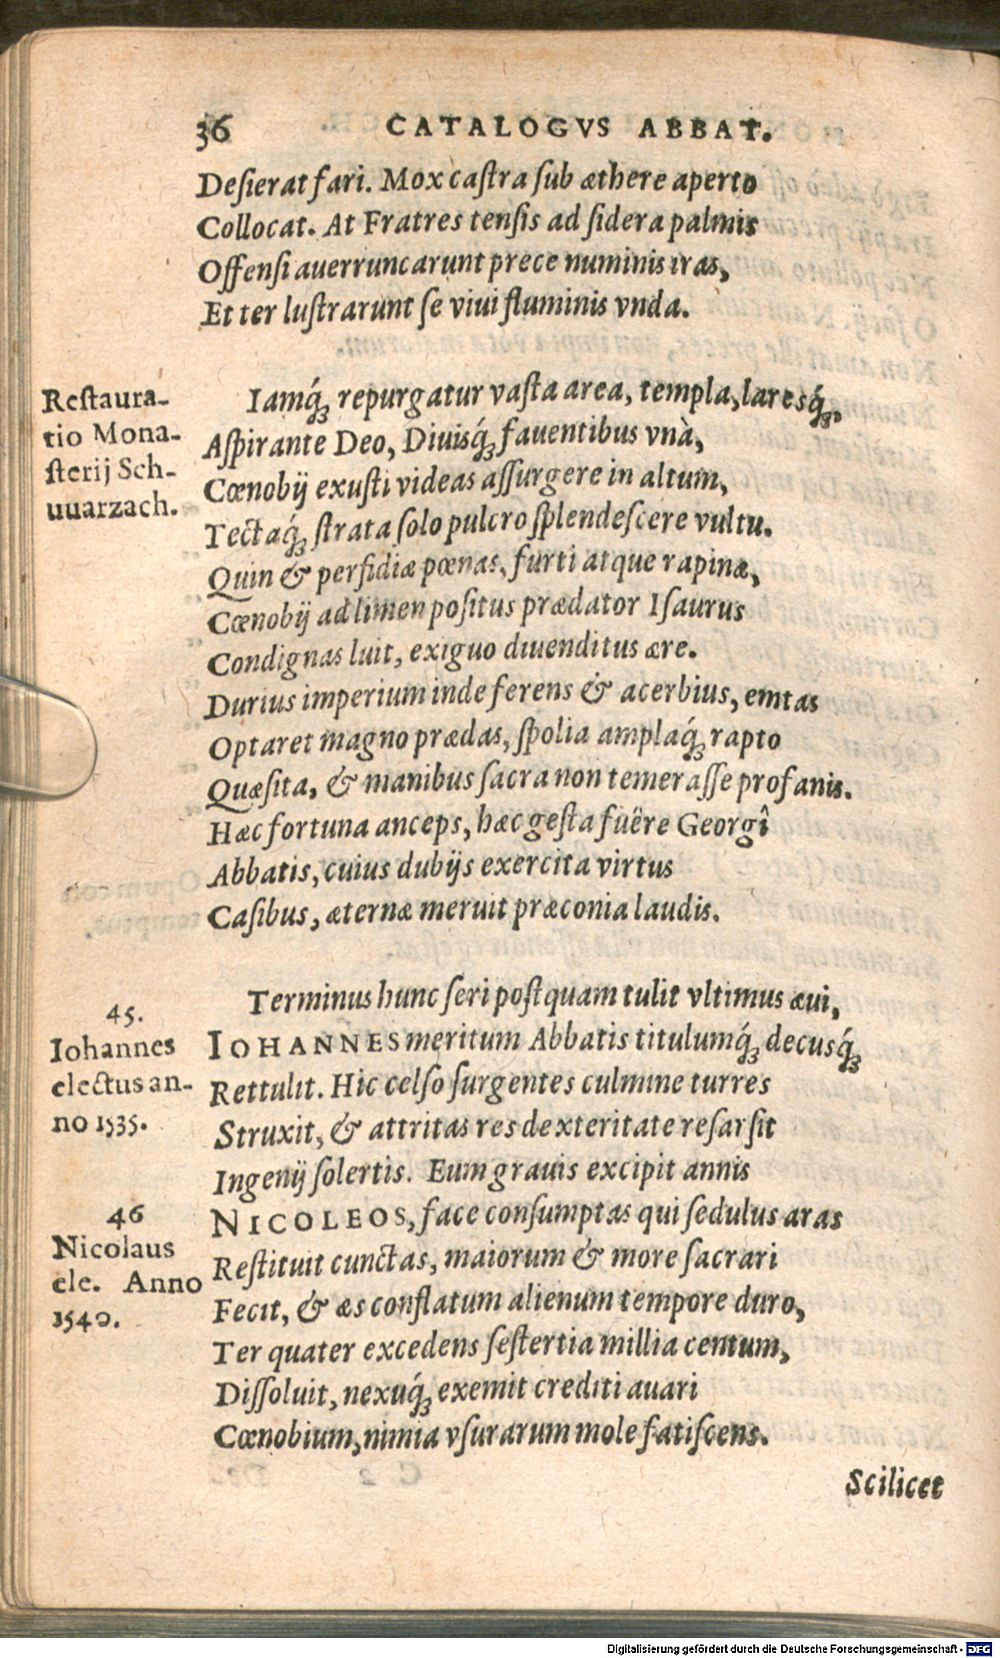 36 CATALOGVS ABBAT.
Desierat fari. Mox castra sub æthere aperto
Collocat. At Fratres tensis ad sidera palmis
Offensi auerruncarunt prece numinis iras,
Et ter lustrarunt se viui fluminis vnda.
Restaura-
tio Mona-
sterij Sch-
uuarzach.
Iamq́; repurgatur vasta area, templa, laresq́;,
Aspirante Deo, Diuisq́; fauentibus vnà,
Cœnobij exusti videas assurgere in altum,
Tectaq́; strata solo pulcro splendescere vultu.
Quin & perfidiæ pœnas, furti atque rapinæ,
Cœnobij ad limen positus prædator Isaurus
Condignas luit, exiguo diuenditus ære.
Durius imperium inde ferens & acerbius, emtas
Optaret magno prædas, spolia amplaq́; rapto
Quæsita, & manibus sacra non temerasse profanis.
Hæc fortuna anceps, hæc gesta fuêre Georgî
Abbatis, cuius dubijs exercita virtus
Casibus, æternæ meruit præconia laudis.
Terminus hunc seri postquam tulit vltimus æui,
45.
Iohannes
electus an-
no 1535.
IOHANNES meritum Abbatis titulumq́; decusq́;
Rettulit. Hic celso surgentes culmine turres
Struxit, & attritas res dexteritate resarsit
Ingenij solertis. Eum grauis excipit annis
46
Nicolaus
ele. Anno
1540.
NICOLEOS, face consumptas qui sedulus aras
Restituit cunctas, maiorum & more sacrari
Fecit, & æs conflatum alienum tempore duro,
Ter quater excedens sestertia millia centum,
Dissoluit, nexuq́; exemit crediti auari
Cœnobium, nimia vsurarum mole fatiscens.
Scilicet
Digitalisierung gefördert durch die Deutsche Forschungsgemeinschaft - DFG